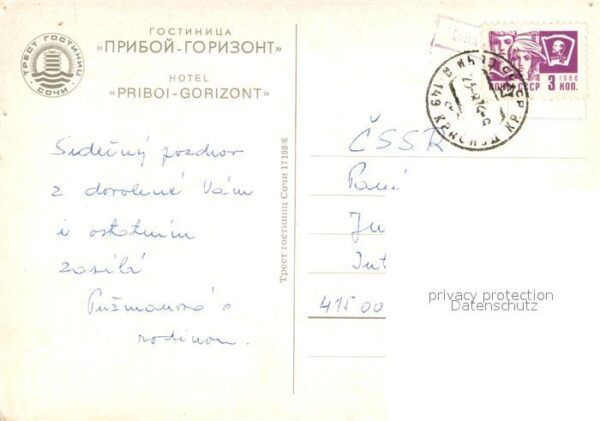 ГОСТИНИЦА
«ПРИБОЙ-ГОРИЗОНТ»
HOTEL
"PRIBOI-GORIZONT"
ТРЕСТ ГОСТИНИЦ
СОЧИ
Srdečný pozdrav
z dovolené Vám
i ostatním
zasílá
s
rodinou.
Трест гостиниц Сочи 17198/6
1966
ПОЧТА СССР 3 КОП.
СОЧИ
ČSSR
Paní
415 00
privacy protection
Datenschutz